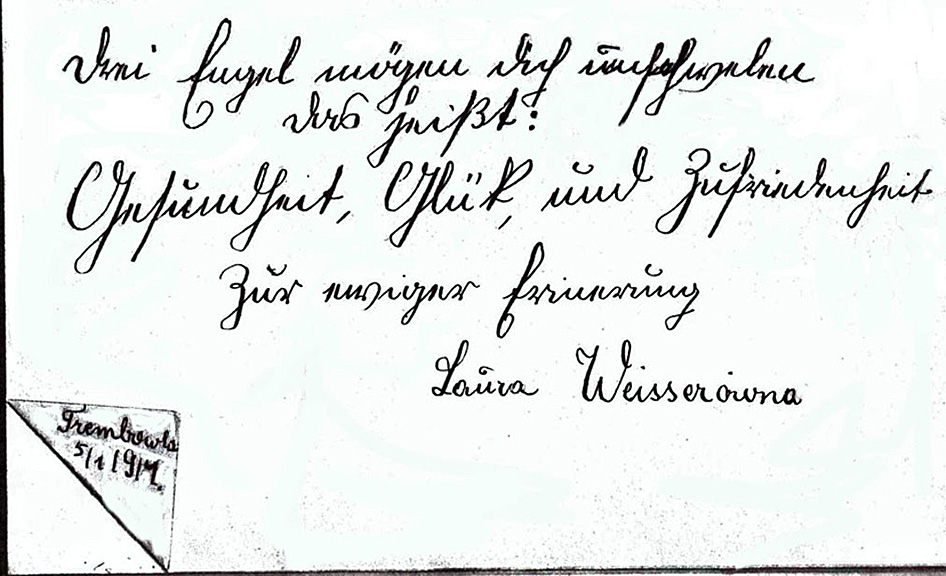 Drei Engel mögen dich umschwelen
das heißt:
Gesundheit, Glük, und Zufriedenheit
Zur ewiger Erinerung
Laura Weisserówna
Trembowla
5/1 1917.